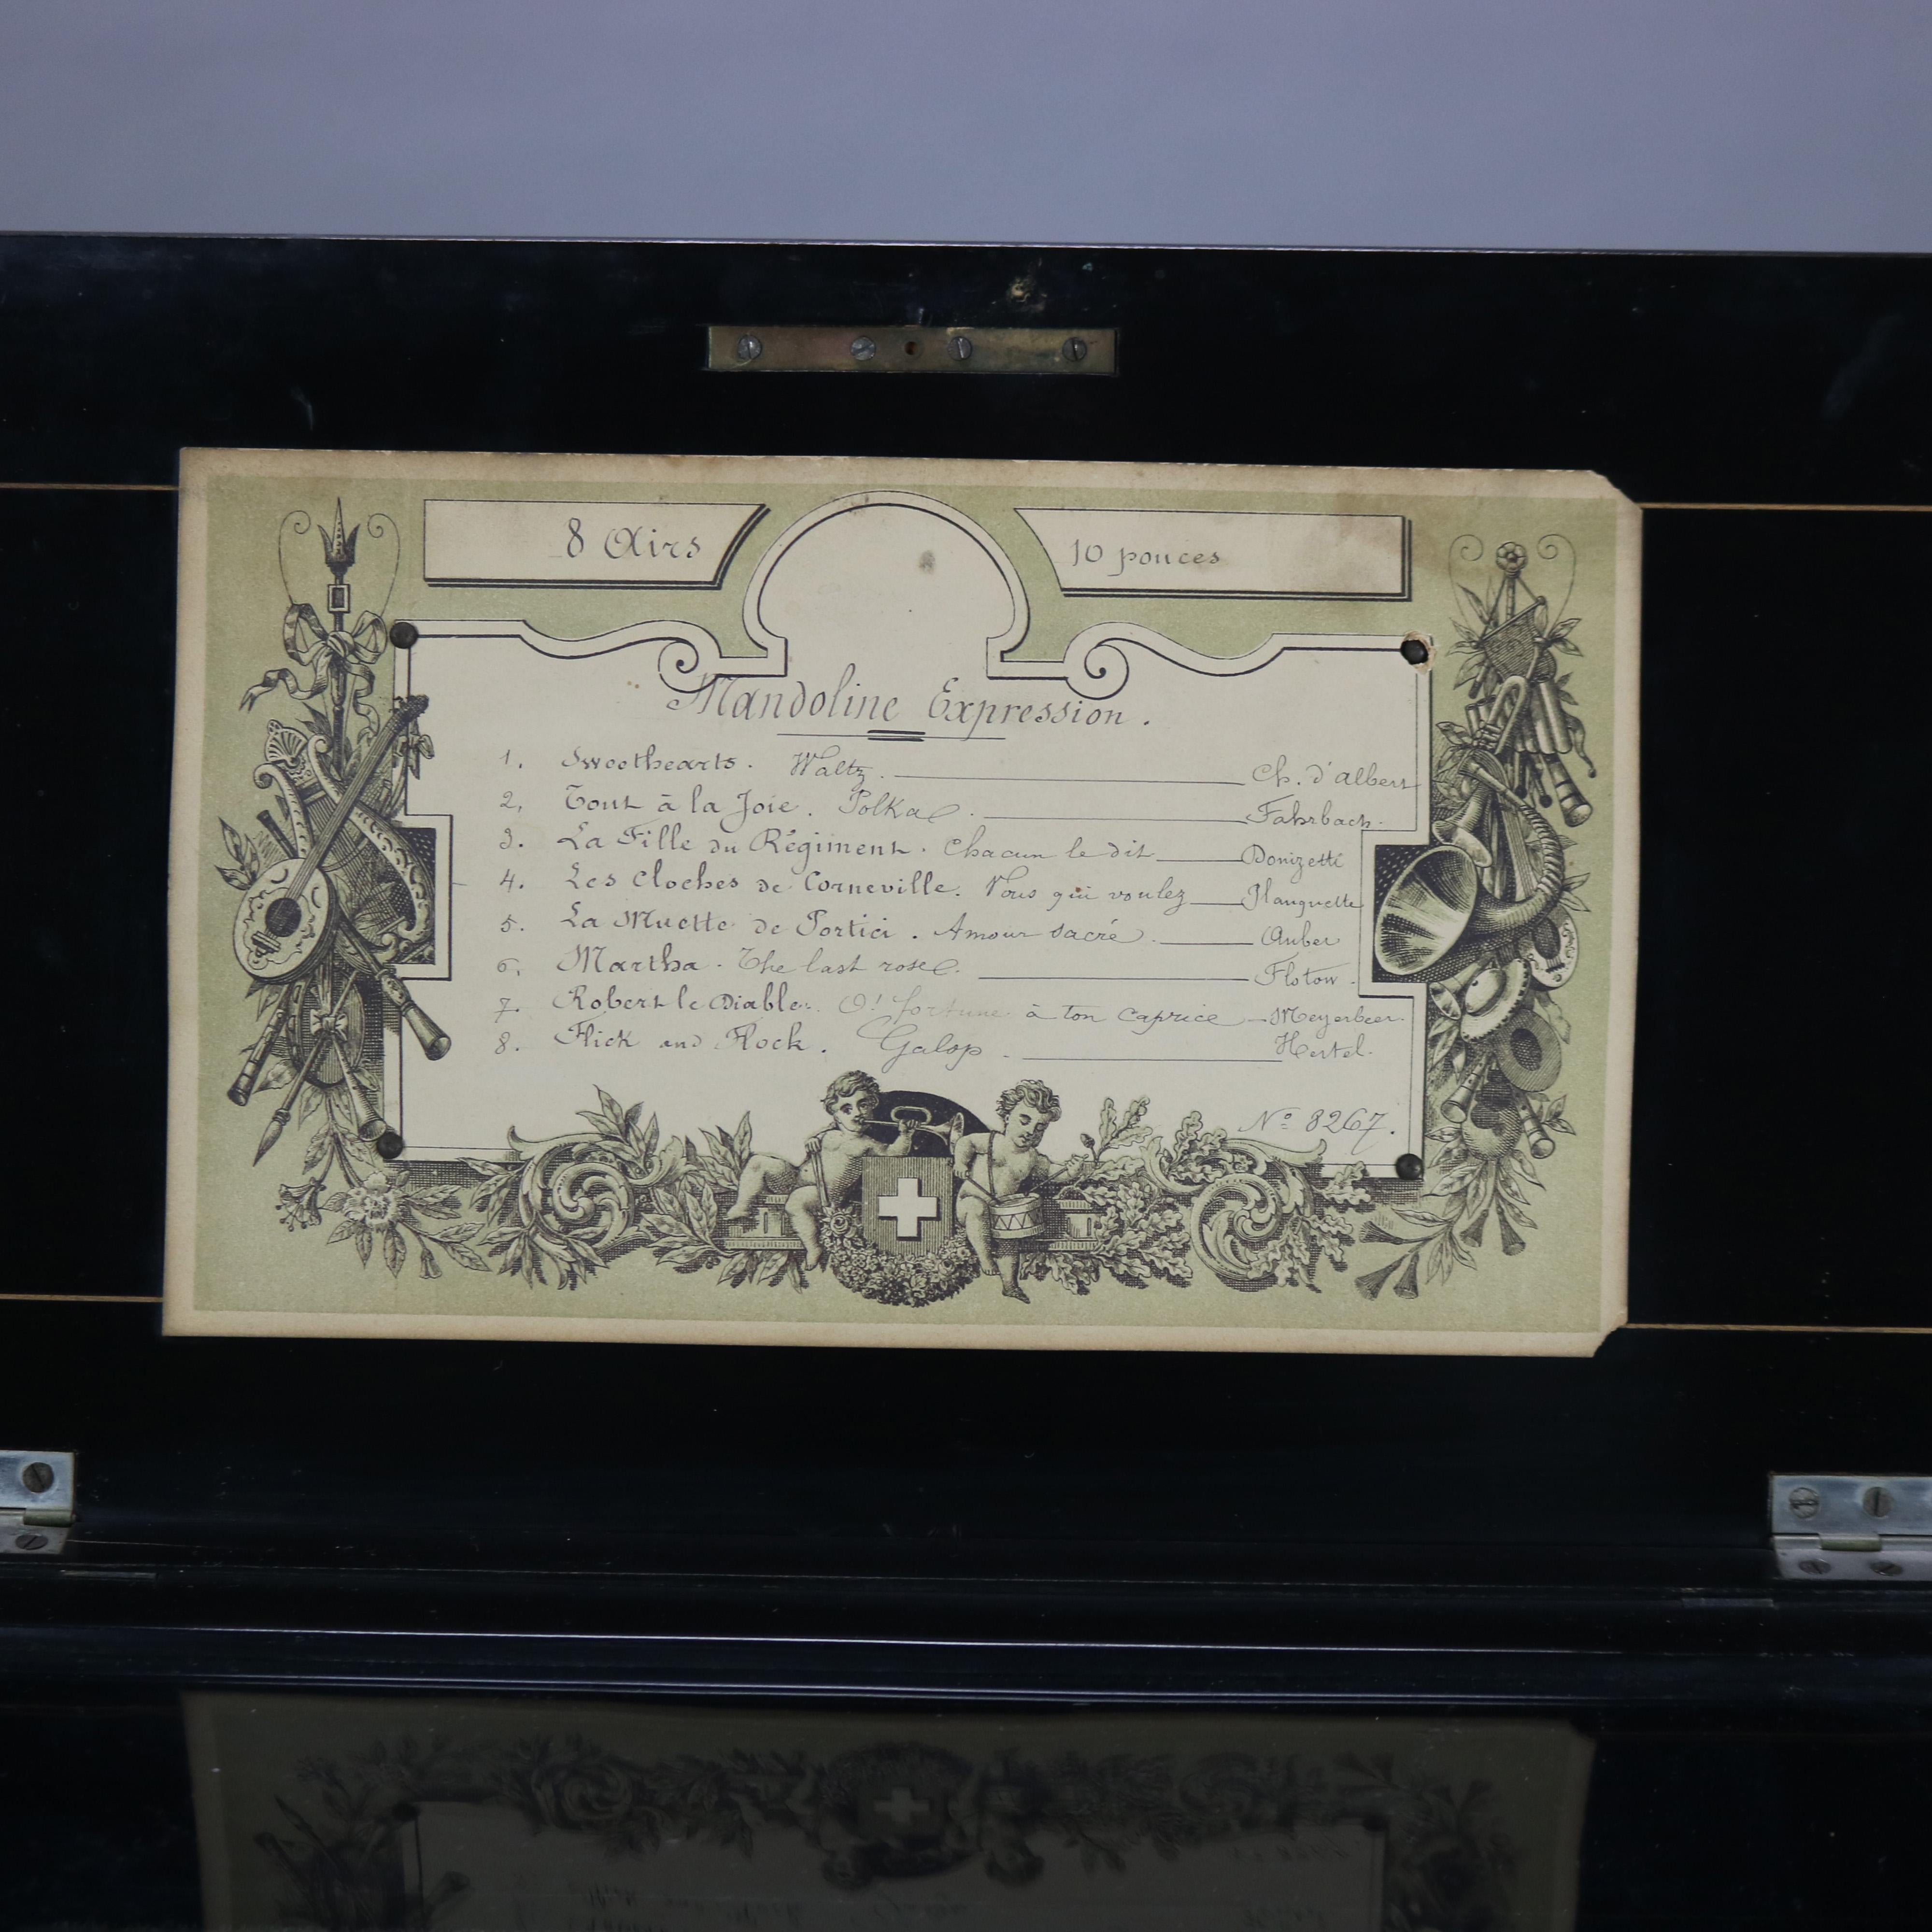 8 Airs
10 pouces
Mandoline Expression.
1. Sweethearts. Waltz. Ch. d'albert
2. Tout à la Joie. Polka. Fahrbach.
3. La Fille du Régiment. Chacun le dit Donizetti
4. Les Cloches de Corneville. Vous qui voulez Planquette
5. La Muette de Portici. Amour sacré. Auber
6. Martha. The last rose. Flotow.
7. Robert le Diable. O! fortune à ton caprice Meyerbeer.
8. Flick and Flock. Galop. Hertel.
Nº 8267.